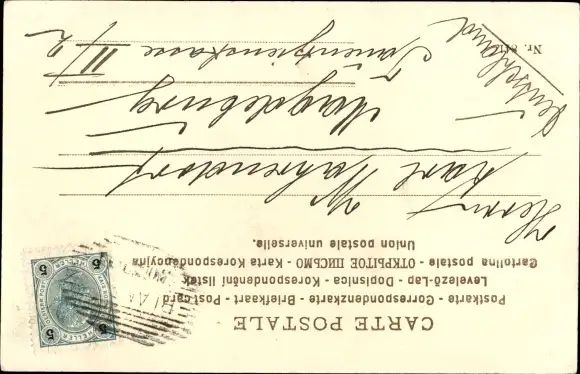 CARTE POSTALE
Postkarte - Correspondenzkarte - Briefkaart - Post card
Levelező-Lap - Dopisnica - Korespondenční lístek
Cartolina postale - ОТКРЫТОЕ ПИСЬМО - Karta Korespondencyjna
Union postale universelle.
Herrn
Karl Wahrendorf
Magdeburg
Tauentzienstrasse
II/2
Deutschland
Nr.
5 5
HELLER
5 5